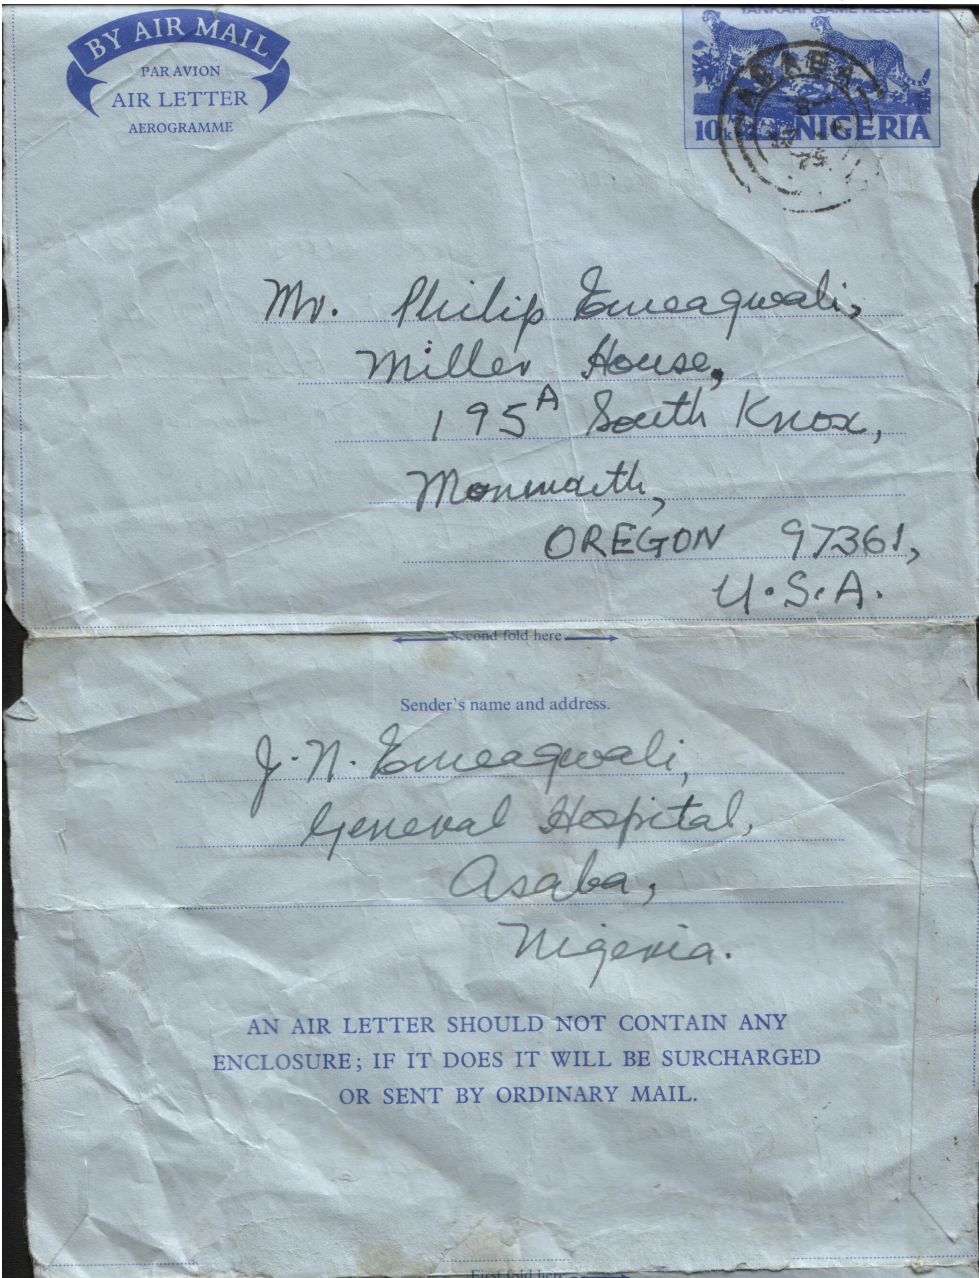 BY AIR MAIL
PAR AVION
AIR LETTER
AEROGRAMME
YANKARI GAME RESERVE
ASABA
10k NIGERIA
Mr. Philip Emeagwali,
Miller House,
195A South Knox,
Monmouth,
OREGON 97361,
U.S.A.
Second fold here
Sender's name and address.
J. N. Emeagwali,
General Hospital,
Asaba,
Nigeria.
AN AIR LETTER SHOULD NOT CONTAIN ANY
ENCLOSURE; IF IT DOES IT WILL BE SURCHARGED
OR SENT BY ORDINARY MAIL.
First fold here